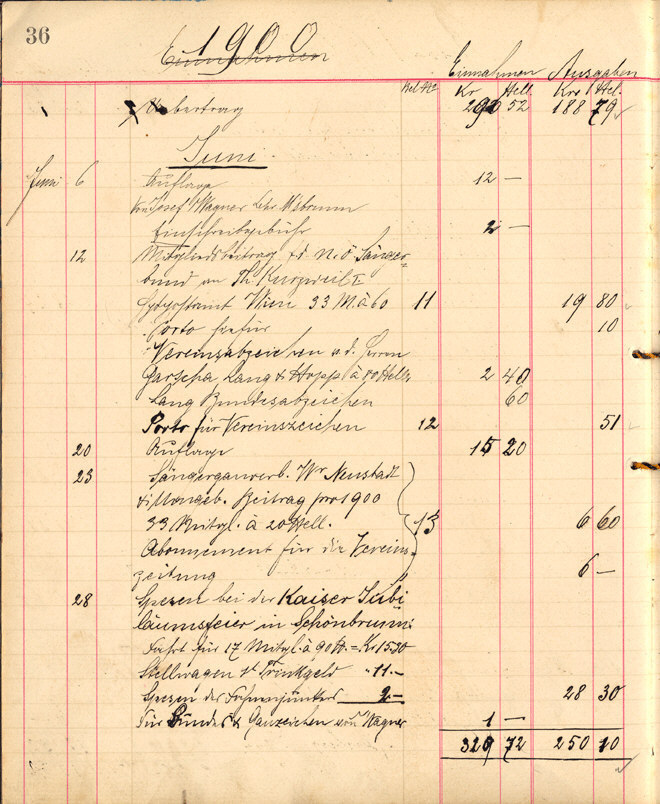 36
1900
Einnahmen
Einnahmen Ausgaben
Bel. No Kr Hell Kr Hel.
Uebertrag 52 188 79
Juni
Juni 6 Auflage 12 —
von Josef Wagner
Einschreibgebühr 2 —
12 Mitgliedsbeitrag f. d. n. ö. Sänger=
bund an Th. Kurzweil I
Wien 33 M. à 60 11 19 80
Porto hiefür 10
Vereinsabzeichen v. d. Herrn
Garscha, Lang & Hopp à 80 Hell. 2 40
Lang Bundesabzeichen 60
Porto für Vereinszeichen 12 51
20 Auflage 15 20
23 Sängergauverb. Wr Neustadt
& Umgeb. Beitrag pro 1900
33 Mitgl. à 20 Hell. 13 6 60
Abonnement für die Vereins=
zeitung 6 —
28 Spesen bei der Kaiser Jubi
läumsfeier in Schönbrunn:
Fahrt für 17 Mitgl. à 90 H. = Kr 15.30
Stellwagen st Trinkgeld " 11.—
Spesen des Fahnenjunkers 2 — 28 30
Für Bundes & Gauzeichen von Wagner 1 —
329 72 250 10